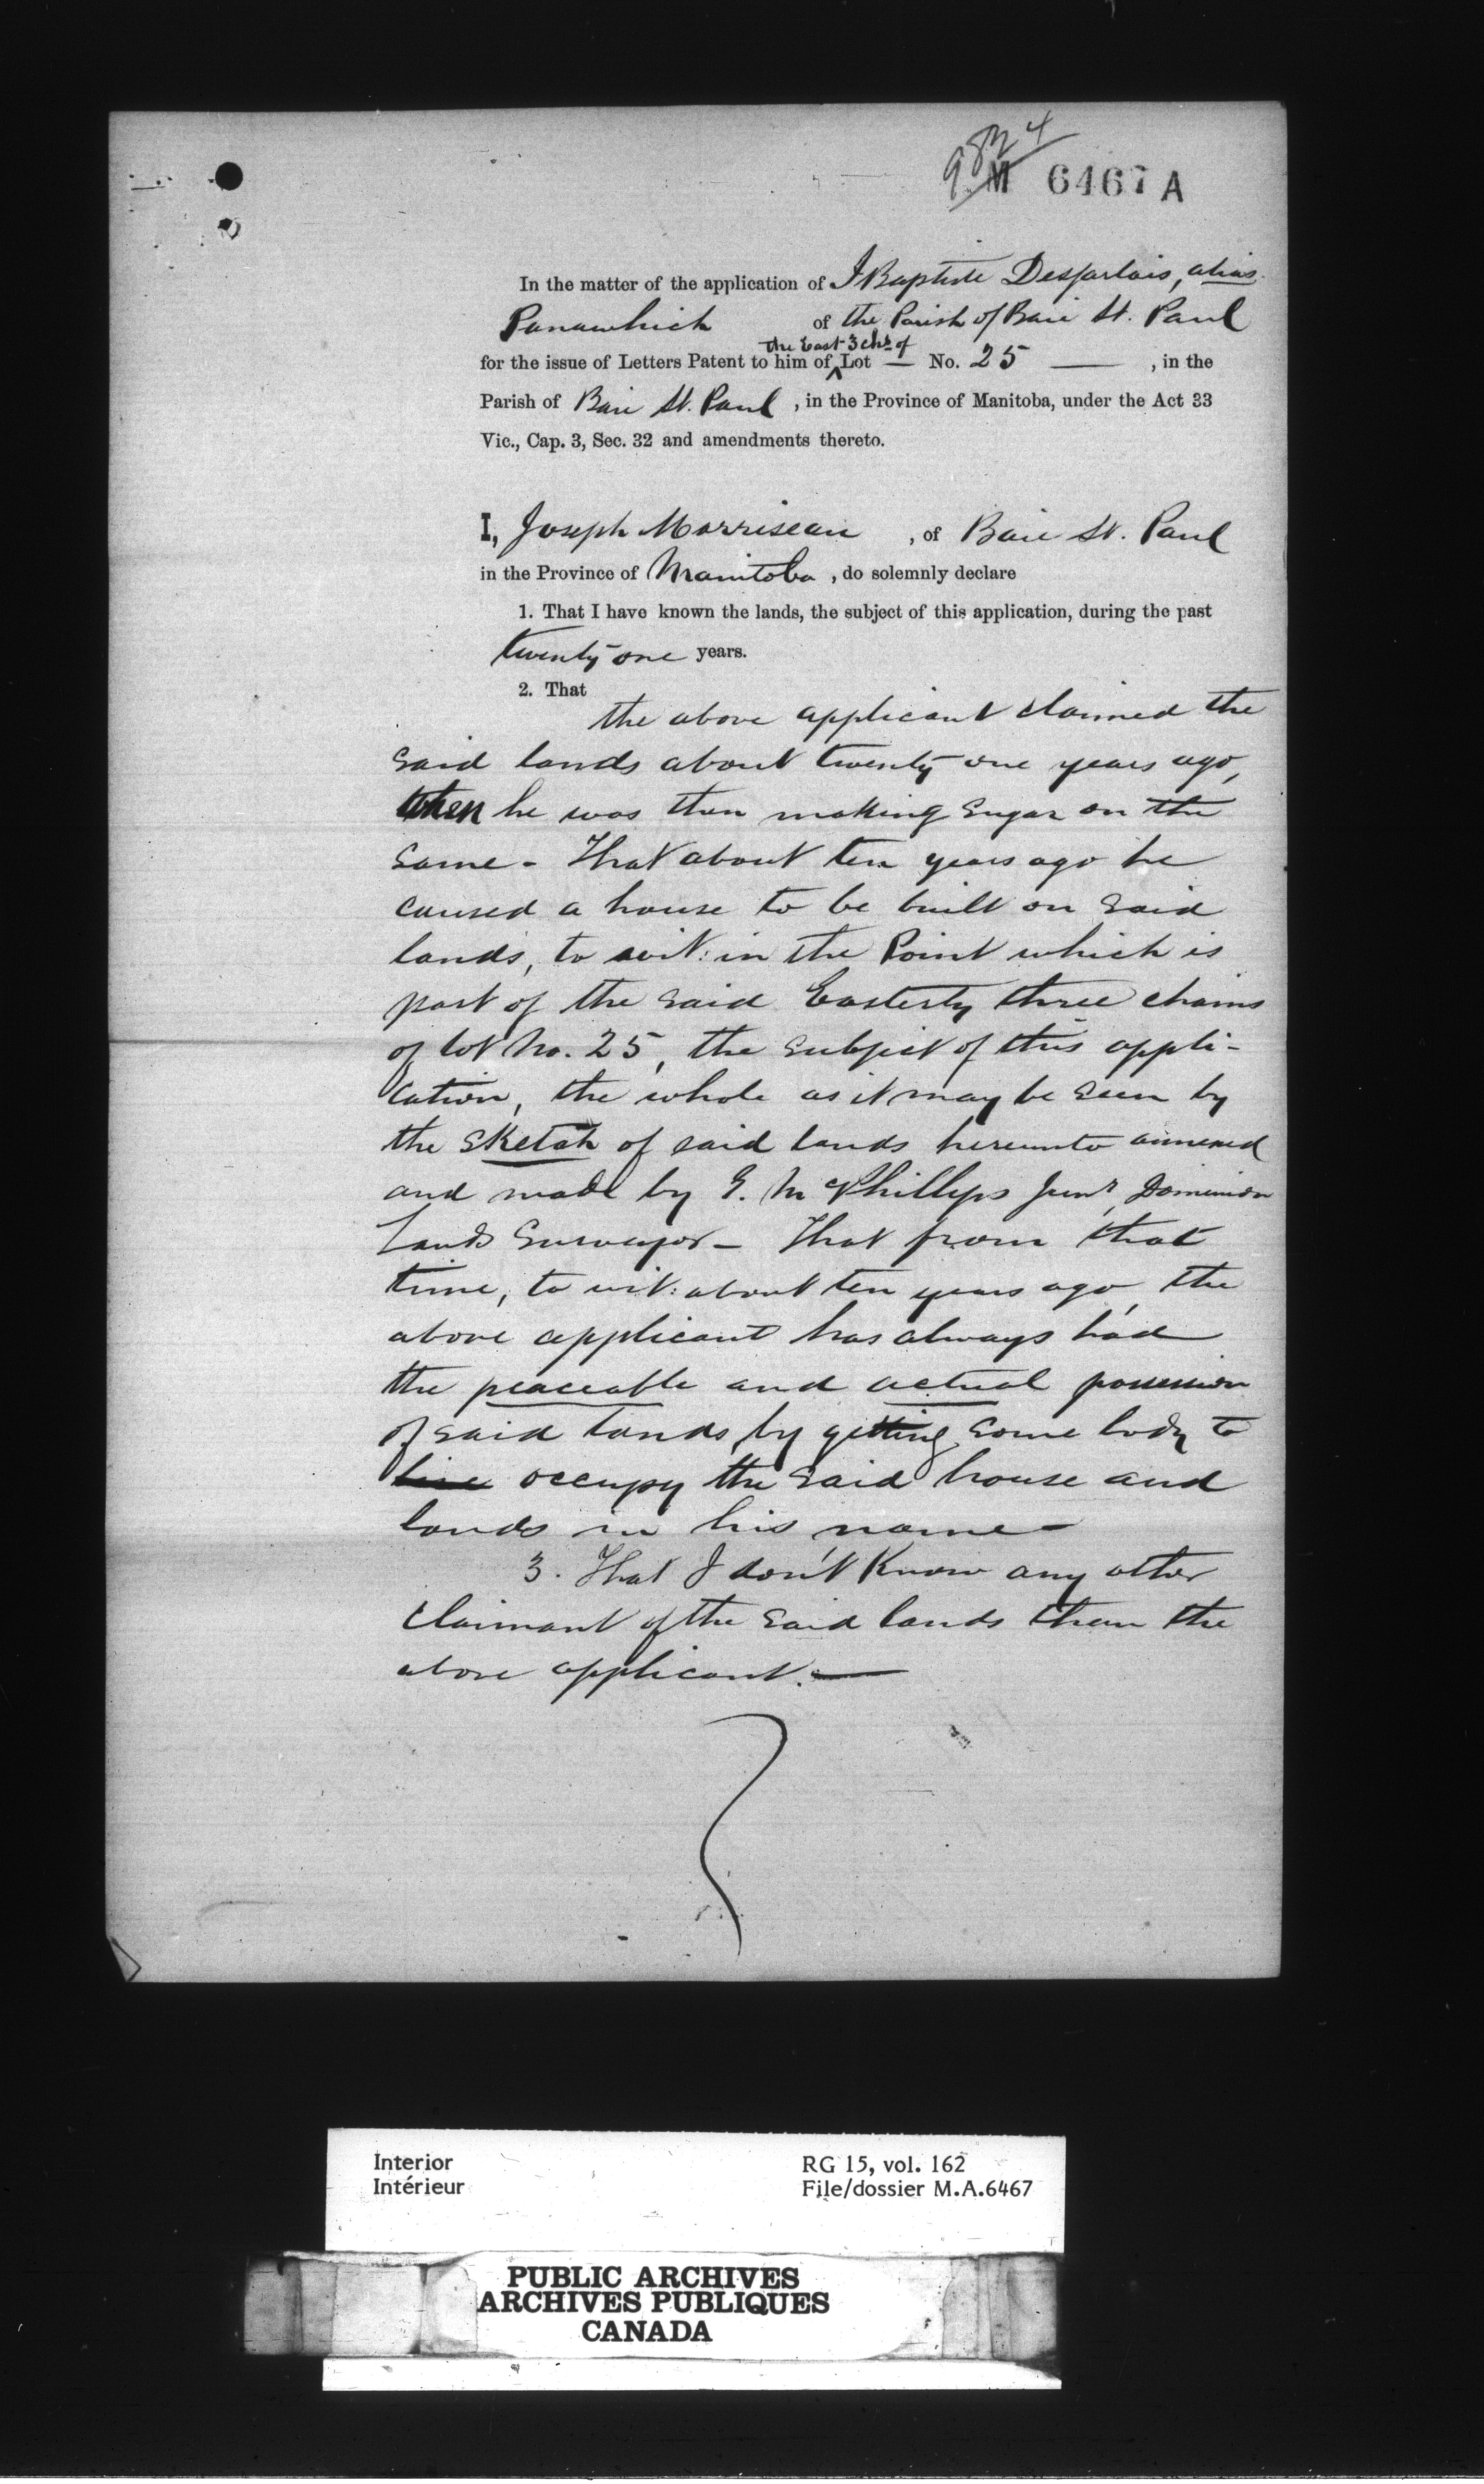 9824
M 6467 A
In the matter of the application of J Baptiste Desjarlais, alias
Panawhich of the Parish of Baie St. Paul
the East 3 chs of
for the issue of Letters Patent to him of Lot — No. 25 — , in the
Parish of Baie St. Paul , in the Province of Manitoba, under the Act 33
Vic., Cap. 3, Sec. 32 and amendments thereto.
I, Joseph Morriseau , of Baie St. Paul
in the Province of Manitoba , do solemnly declare
1. That I have known the lands, the subject of this application, during the past
twenty one years.
2. That
the above applicant claimed the
said lands about twenty one years ago,
when he was then making sugar on the
same - That about ten years ago he
caused a house to be built on said
lands, to wit: in the Point which is
part of the said Easterly three chains
of lot No. 25, the subject of this appli-
cation, the whole as it may be seen by
the sketch of said lands hereunto annexed
and made by G. McPhillips Junr, Dominion
Lands Surveyor - That from that
time, to wit: about ten years ago, the
above applicant has always had
the peaceable and actual possession
of said lands by getting some body to
live occupy the said house and
lands in his name -
3. That I don't know any other
claimant of the said lands than the
above applicant. —
Interior RG 15, vol. 162
Intérieur File/dossier M.A.6467
PUBLIC ARCHIVES
ARCHIVES PUBLIQUES
CANADA